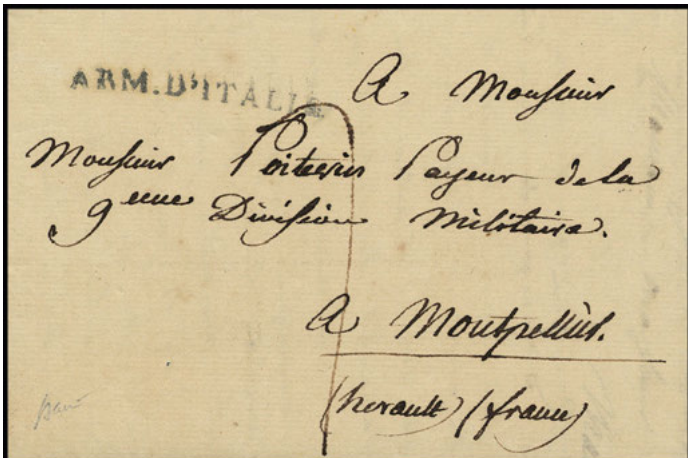 ARM. D'ITALIE
A Monsieur
Monsieur Poitevin Payeur de la
9eme Division Militaire.
A Montpellier.
(herault) (france)